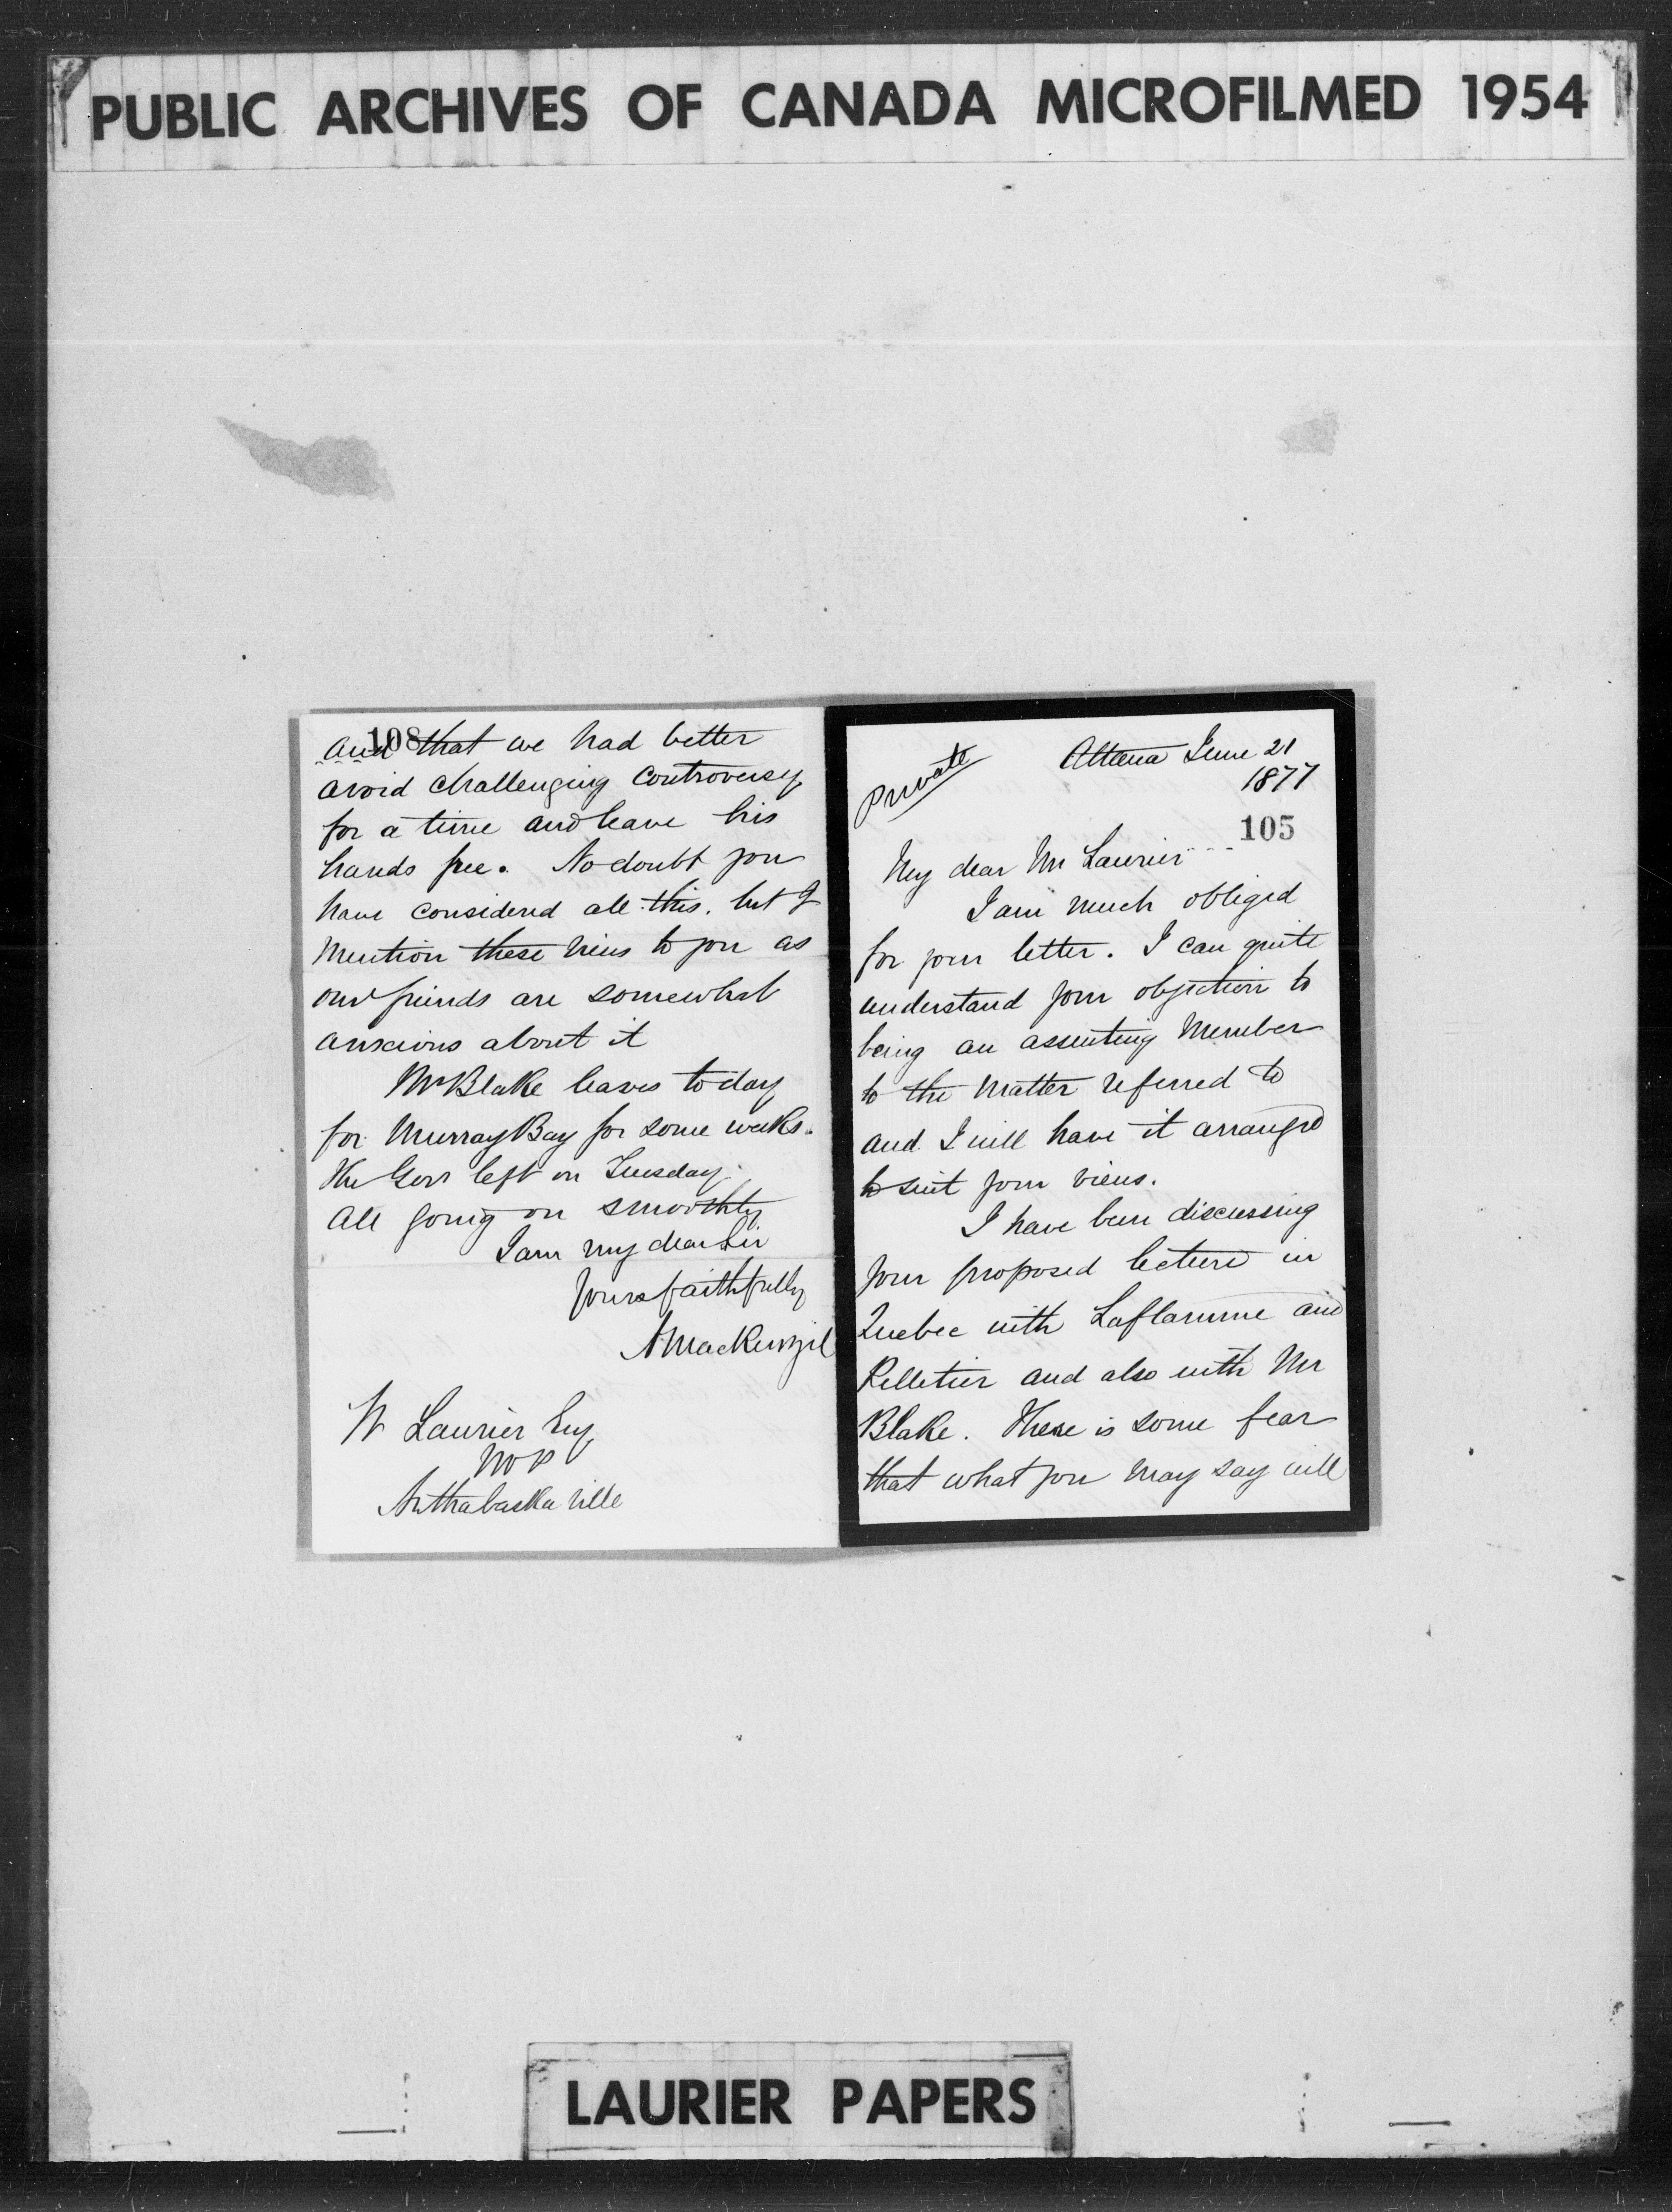 PUBLIC ARCHIVES OF CANADA MICROFILMED 1954
108
and that we had better
avoid challenging controversy
for a time and leave his
hands free. No doubt you
have considered all this, but I
mention these views to you as
our friends are somewhat
anxious about it
Mr Blake leaves to day
for Murray Bay for some weeks.
The Govr left on Tuesday.
All going on smoothly
I am my dear Sir
Yours faithfully
A Mackenzie
W Laurier Esq
MP
Arthabaska ville
Private
Ottawa June 21
1877
105
My dear Mr Laurier
I am much obliged
for your letter. I can quite
understand your objection to
being an assenting Member
to the matter referred to
and I will have it arranged
to suit your views.
I have been discussing
your proposed lecture in
Quebec with Laflamme and
Pelletier and also with Mr
Blake. There is some fear
that what you may say will
LAURIER PAPERS